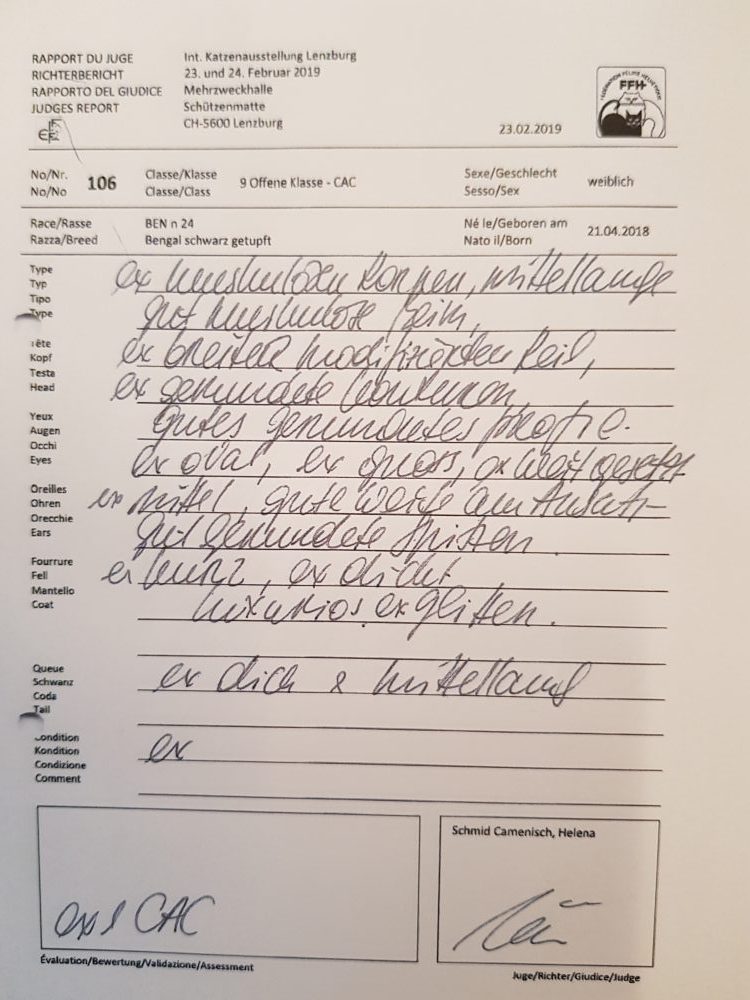 RAPPORT DU JUGE
RICHTERBERICHT
RAPPORTO DEL GIUDICE
JUDGES REPORT
Int. Katzenausstellung Lenzburg
23. und 24. Februar 2019
Mehrzweckhalle
Schützenmatte
CH-5600 Lenzburg
23.02.2019
FFH
No/Nr.
No/No
106
Classe/Klasse
Classe/Class
9 Offene Klasse - CAC
Sexe/Geschlecht
Sesso/Sex
weiblich
Race/Rasse
Razza/Breed
BEN n 24
Bengal schwarz getupft
Né le/Geboren am
Nato il/Born
21.04.2018
Type
Typ
Tipo
Type
ex muskulöser Körper, mittellange
gut muskulöse Beine,
Tête
Kopf
Testa
Head
ex breiter modifizierter Keil,
ex gerundete Konturen,
gutes gerundetes Profil.
Yeux
Augen
Occhi
Eyes
ex oval, ex gross, ex weit gesetzt
Oreilles
Ohren
Orecchie
Ears
ex mittel, gute Weite am Ansatz
gut gerundete Spitzen.
Fourrure
Fell
Mantello
Coat
ex kurz, ex dicht
luxuriös, ex Glitter.
Queue
Schwanz
Coda
Tail
ex dick & mittellang
Condition
Kondition
Condizione
Comment
ex
ex 1 CAC
Évaluation/Bewertung/Validazione/Assessment
Schmid Camenisch, Helena
Juge/Richter/Giudice/Judge